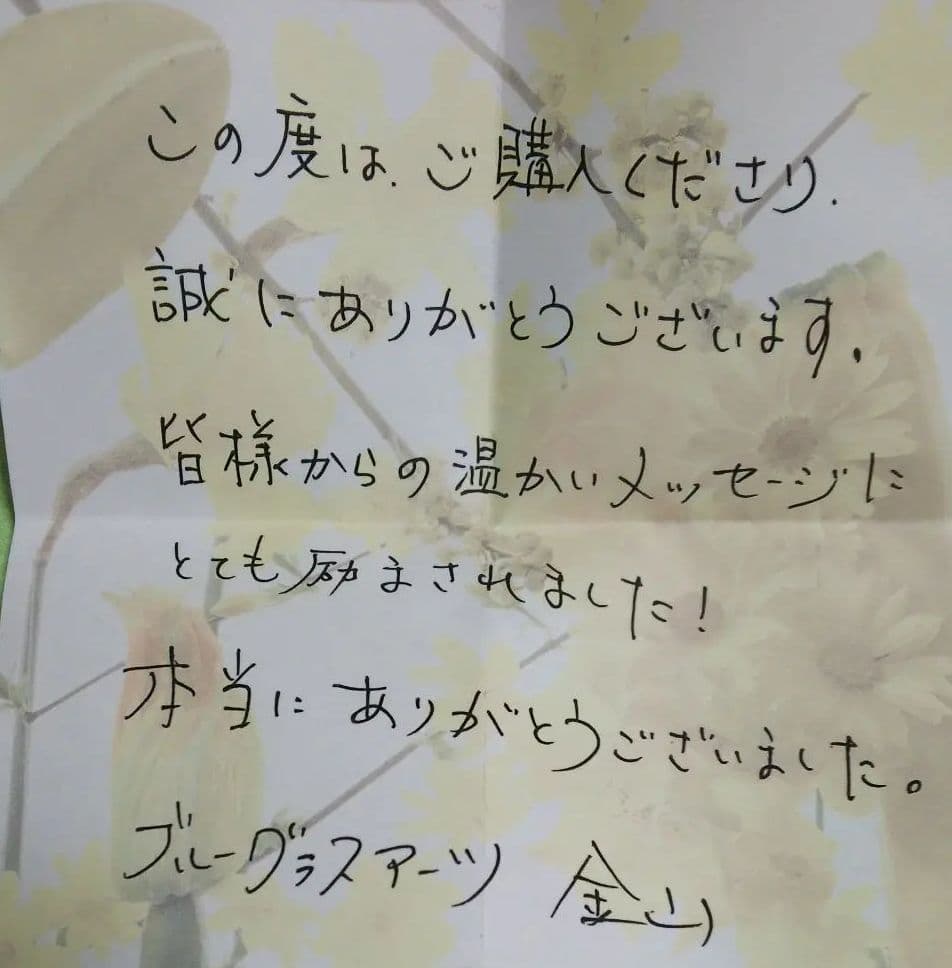 この度は、ご購入くださり、
誠にありがとうございます。
皆様からの温かいメッセージに
とても励まされました！
本当にありがとうございました。
ブルーグラスアーツ 金山